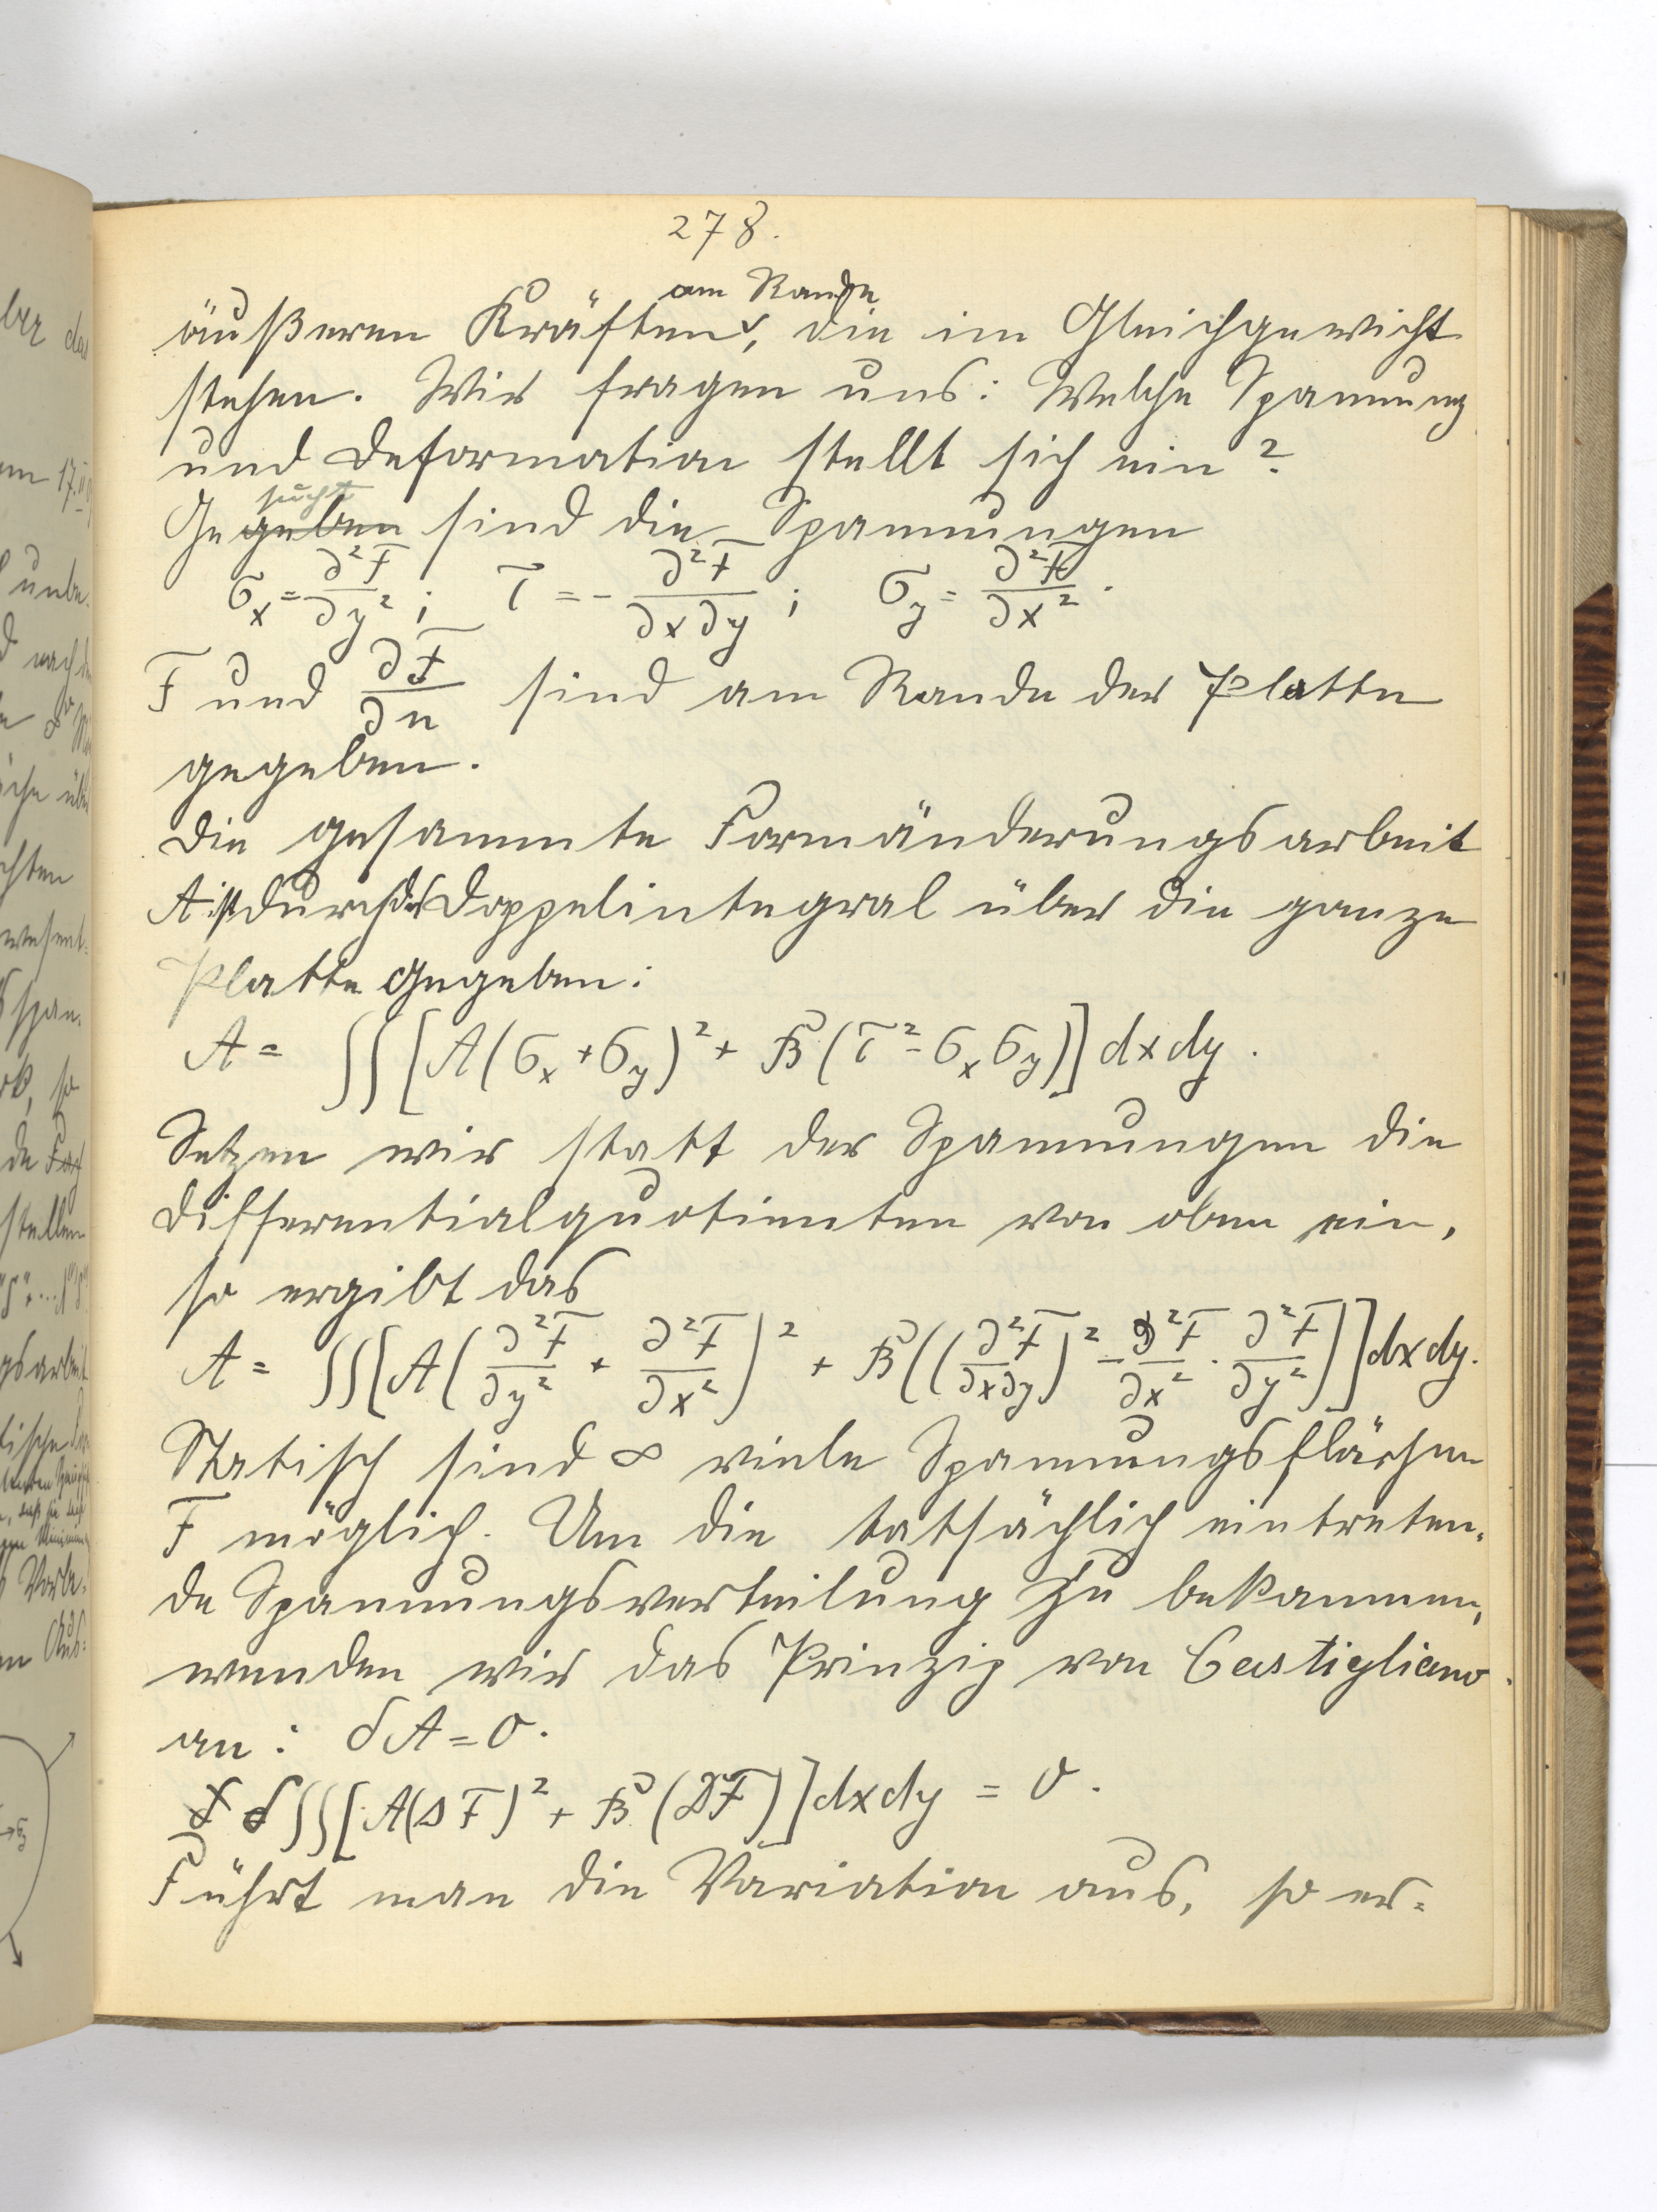 278.
am Rande
äußeren Kräften, die im Gleichgewicht
stehen. Wir fragen uns: Welche Spannung
und Deformation stellt sich ein?
sucht
Gegeben sind die Spannungen
σx = ∂²F/∂y² ; τ = - ∂²F/∂x∂y ; σy = ∂²F/∂x² .
F und ∂F/∂n sind am Rande der Platte
gegeben.
Die gesammte Formänderungsarbeit
A ist durch das Doppelintegral über die ganze
Platte gegeben:
A = ∫∫ [A(σx + σy)² + B(τ² - σx σy)] dx dy .
Setzen wir statt der Spannungen die
Differentialquotienten von oben ein,
so ergibt das
A = ∫∫[A(∂²F/∂y² + ∂²F/∂x²)² + B((∂²F/∂x∂y)² - ∂²F/∂x² · ∂²F/∂y²)] dx dy.
Statisch sind ∞ viele Spannungsflächen
F möglich. Um die tatsächlich eintreten=
de Spannungsverteilung zu bekommen,
wenden wir das Prinzip von Castigliano
an: δA = 0.
δ∫∫[A(ΔF)² + B(DF)] dx dy = 0.
Führt man die Variation aus, so er=